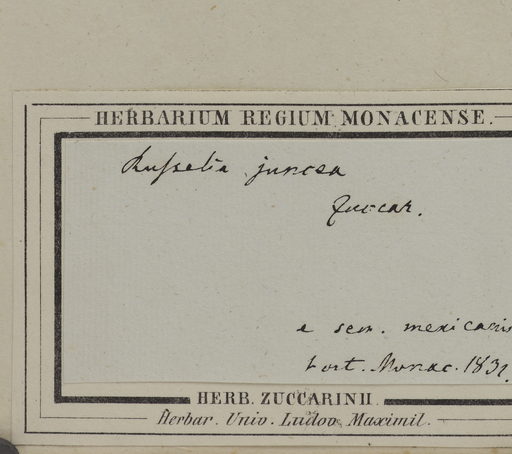 HERBARIUM REGIUM MONACENSE.
Russelia juncea
Zuccar.
e sem. mexicanis
hort. Monac. 1831.
HERB. ZUCCARINII.
Herbar. Univ. Ludov. Maximil.